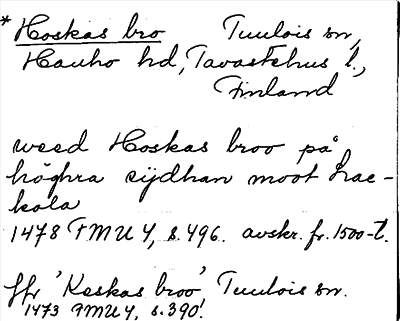 * Hoskas bro Tuulois sn,
Hauho hd, Tavastehus l.,
Finland
weed Hoskas broo på
höghra sijdhan moot Lrae-
kola
1478 FMU 4, s. 496. avskr. fr. 1500-t.
Jfr 'Keskas broo' Tuulois sn.
1473 FMU 4, s. 390.